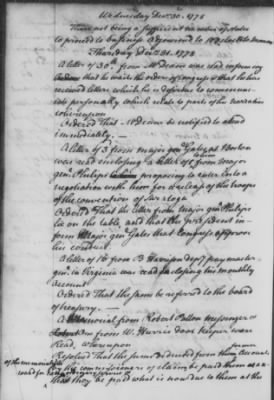 Wednesday Decr. 30. 1778
There not being a sufficient number of States
to proceed to business Adjourned to 10 oClock to morrow
Thursday Decr. 31. 1778
A letter of 30th from Mr Deane was read informing
that he waits the orders of Congress & that he has
received letters which he is desirous to communi-
cate personally which relate to parts of his narration
whereupon
Ordered That Mr Deane be notified to attend
immediately.—
A letter of 3 from Major genl Gates at Boston
was read enclosing a letter of from Major
genl Philips proposing to enter into a
negotiation with him for a release of the troops
of the convention of Saratoga
Ordered That the letter from Major genl Philips
lie on the table and that the president in-
form Major genl Gates that Congress approve
his conduct.
A letter of 16 from B Harrison depy paymaster
genl in Virginia was read enclosing his monthly
Account
Ordered That the same be referred to the board
of treasury.—
A Memorial from Robert Patton messenger &
from W. Hurrie door keeper were
Read, whereupon
Resolved That the sums deducted from their
Accounts
by the commissioners of claims be paid them
that they be paid what is now due to them at the
of the memorial